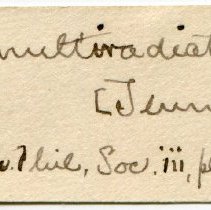 multiradiat
[Jenn
. Phil. Soc. iii, p